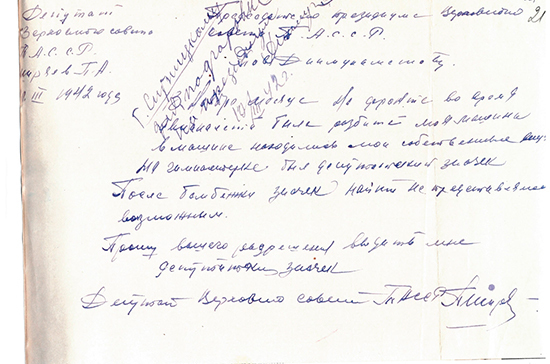 Депутат
Верховного совета
Т.А.С.С.Р.
П.А.
III 1942 года
21
Председателю президиума Верховного
совета Т.А.С.С.Р.
тов Динмухаметову.
10/III 42 г.
По дороге во время
была разбита моя машина
в машине находились мои собственные
На гимнастерке был депутатский значек
После бомбежки значек найти не представляется
возможным.
Прошу вашего разрешения выдать мне
депутатский значек
Депутат Верховно совета ТАССР